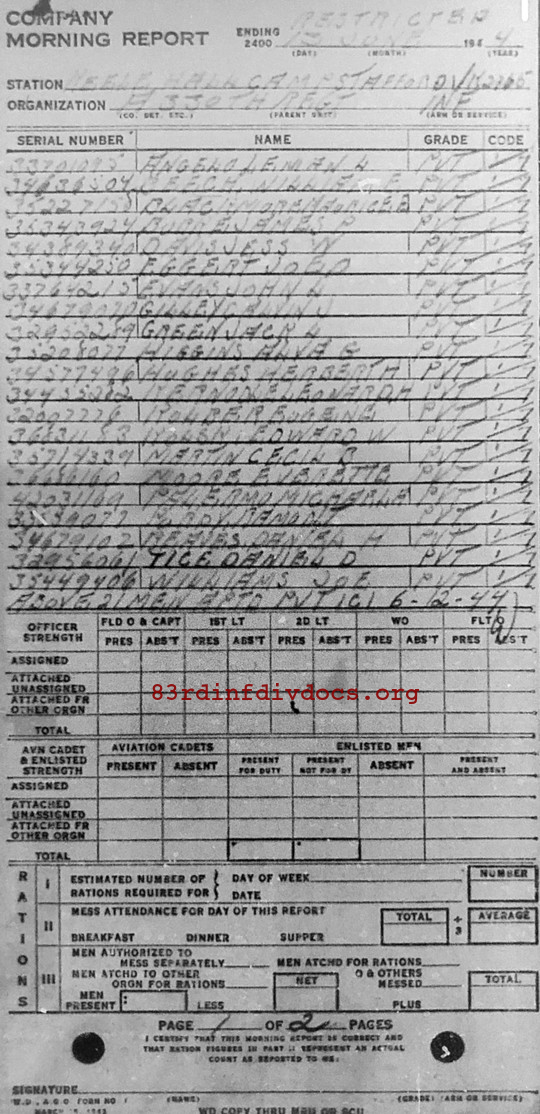 COMPANY
MORNING REPORT
RESTRICTED
ENDING 2400 13 JUNE 1944
(DAY) (MONTH) (YEAR)
STATION KEELE HALL CAMP STAFFORD
ORGANIZATION A 330TH REGT INF
(CO. DET. ETC.) (PARENT UNIT) (ARM OR SERVICE)
SERIAL NUMBER NAME GRADE CODE
ANGELO LEMAN PVT
34636504 BEECH, WILLIE E PVT
35227158 PVT
35343924 BURKE JAMES P PVT
34389340 DAVIS JESS W PVT
35344250 EGGERT JOE D PVT
33764215 EVANS JOHN L PVT
34679070 GILLEY CALVIN J PVT
32952289 GREEN JACK L PVT
35208077 HIGGINS ALVA G PVT
34577496 HUGHES HERBERT A PVT
34455282 LEONARD H PVT
32007776 EUGENE PVT
EDWARD W PVT
35714339 MARTIN CECIL R PVT
36686160 MOORE EVERETTE PVT
42031169 PVT
PVT
34679102 REAVES DANIEL H PVT
32956061 TICE DANIEL D PVT
35449406 WILLIAMS JOE PVT
ABOVE 21 MEN APTD PVT 1CL 6-12-44
OFFICER STRENGTH FLD O & CAPT 1ST LT 2D LT WO FLT O
PRES ABS'T PRES ABS'T PRES ABS'T PRES ABS'T PRES ABS'T
ASSIGNED
ATTACHED UNASSIGNED
ATTACHED FR OTHER ORGN
TOTAL
83rdinfdivdocs.org
AVN CADET & ENLISTED STRENGTH AVIATION CADETS ENLISTED MEN
PRESENT ABSENT PRESENT FOR DUTY PRESENT NOT FOR DY ABSENT PRESENT AND ABSENT
ASSIGNED
ATTACHED UNASSIGNED
ATTACHED FR OTHER ORGN
TOTAL
RATIONS
I ESTIMATED NUMBER OF RATIONS REQUIRED FOR DAY OF WEEK DATE NUMBER
II MESS ATTENDANCE FOR DAY OF THIS REPORT TOTAL ÷ 3 AVERAGE
BREAKFAST DINNER SUPPER
III MEN AUTHORIZED TO MESS SEPARATELY MEN ATCHD FOR RATIONS
MEN ATCHD TO OTHER ORGN FOR RATIONS NET O & OTHERS MESSED TOTAL
MEN PRESENT LESS PLUS
PAGE 1 OF 2 PAGES
I CERTIFY THAT THIS MORNING REPORT IS CORRECT AND
THAT RATION FIGURES IN PART II REPRESENT AN ACTUAL
COUNT AS REPORTED TO ME:
SIGNATURE
W.D., A.G.O. FORM NO. 1 (NAME) (GRADE) (ARM OR SERVICE)
WD COPY THRU MRU OR SCU